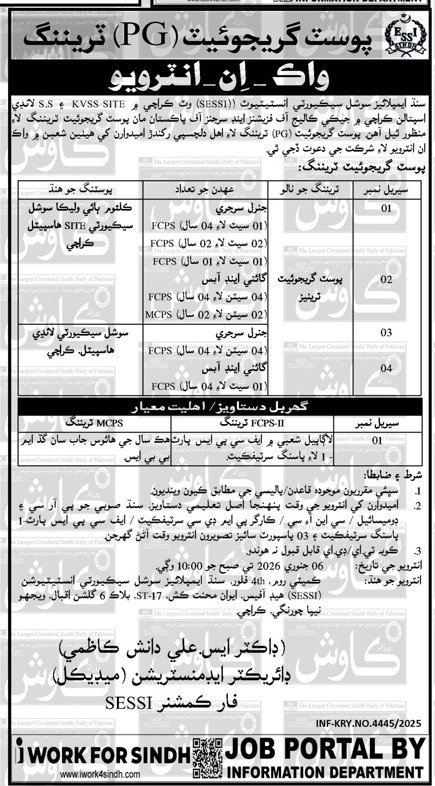 INFORMATION DEPARTMENT
ESSI
SINDH
پوسٽ گريجوئيٽ (PG) ٽريننگ
واڪ_اِن_انٽرويو
سنڌ ايمپلائيز سوشل سيڪيورٽي انسٽيٽيوٽ (SESSI) وٽ ڪراچي ۾ KVSS SITE ۽ S.S لانڍي
اسپتالن ڪراچي ۾ جيڪي ڪاليج آف فزيشنز اينڊ سرجنز آف پاڪستان مان پوسٽ گريجوئيٽ ٽريننگ لاءِ
منظور ٿيل آهن. پوسٽ گريجوئيٽ (PG) ٽريننگ لاءِ اهل دلچسپي رکندڙ اميدوارن کي هيٺين شعبن ۾ واڪ
ان انٽرويو لاءِ شرڪت جي دعوت ڏجي ٿي.
پوسٽ گريجوئيٽ ٽريننگ:
سيريل نمبر	ٽريننگ جو نالو	عهدن جو تعداد	پوسٽنگ جو هنڌ
01	جنرل سرجري	ڪلثوم ٻائي وليڪا سوشل
01 سيٽ لاءِ 04 سال) FCPS	سيڪيورٽي SITE هاسپيٽل
02 سيٽ لاءِ 02 سال) FCPS	ڪراچي
01 سيٽ لاءِ 01 سال) FCPS
02	پوسٽ گريجوئيٽ	گائني اينڊ آبس
ٽرينيز	04 سيٽن لاءِ 04 سال) FCPS
02 سيٽن لاءِ 02 سال) MCPS
03	جنرل سرجري	سوشل سيڪيورٽي لانڍي
04 سيٽن لاءِ 04 سال) FCPS	هاسپيٽل، ڪراچي
04	گائني اينڊ آبس
01 سيٽ لاءِ 04 سال) FCPS
گهربل دستاويز/ اهليت معيار
سيريل نمبر	FCPS-II ٽريننگ	MCPS ٽريننگ
01	لاڳاپيل شعبي ۾ ايف سي پي ايس پارٽ	هڪ سال جي هائوس جاب سان گڏ ايم
- 1 لاءِ پاسنگ سرٽيفڪيٽ.	بي بي ايس.
شرط ۽ ضابطا:
1. سڀئي مقرريون موجوده قاعدن/پاليسي جي مطابق ڪيون وينديون.
2. اميدوارن کي انٽرويو جي وقت پنهنجا اصل تعليمي دستاويز، سنڌ صوبي جو پي آر سي ۽
ڊوميسائيل / سي اين آءِ سي / ڪارگر پي ايم ڊي سي سرٽيفڪيٽ / ايف سي پي ايس پارٽ-1
پاسنگ سرٽيفڪيٽ ۽ 03 پاسپورٽ سائيز تصويرون انٽرويو وقت آڻڻ گهرجن.
3. ڪوبه ٽي اي/ڊي اي قابل قبول نه هوندو.
انٽرويو جي تاريخ: 06 جنوري 2026 تي صبح جو 10:00 وڳي.
انٽرويو جو هنڌ: ڪميٽي روم، 4th فلور، سنڌ ايمپلائيز سوشل سيڪيورٽي انسٽيٽيوشن
(SESSI) هيڊ آفيس، ايوان محنت ڪش، ST-17، بلاڪ 6 گلشن اقبال، ويجهو
نيپا چورنگي، ڪراچي.
(ڊاڪٽر ايس.علي دانش ڪاظمي)
ڊائريڪٽر ايڊمنسٽريشن (ميڊيڪل)
فار ڪمشنر SESSI
INF-KRY.NO.4445/2025
i WORK FOR SINDH
www.iwork4sindh.com
JOB PORTAL BY
INFORMATION DEPARTMENT